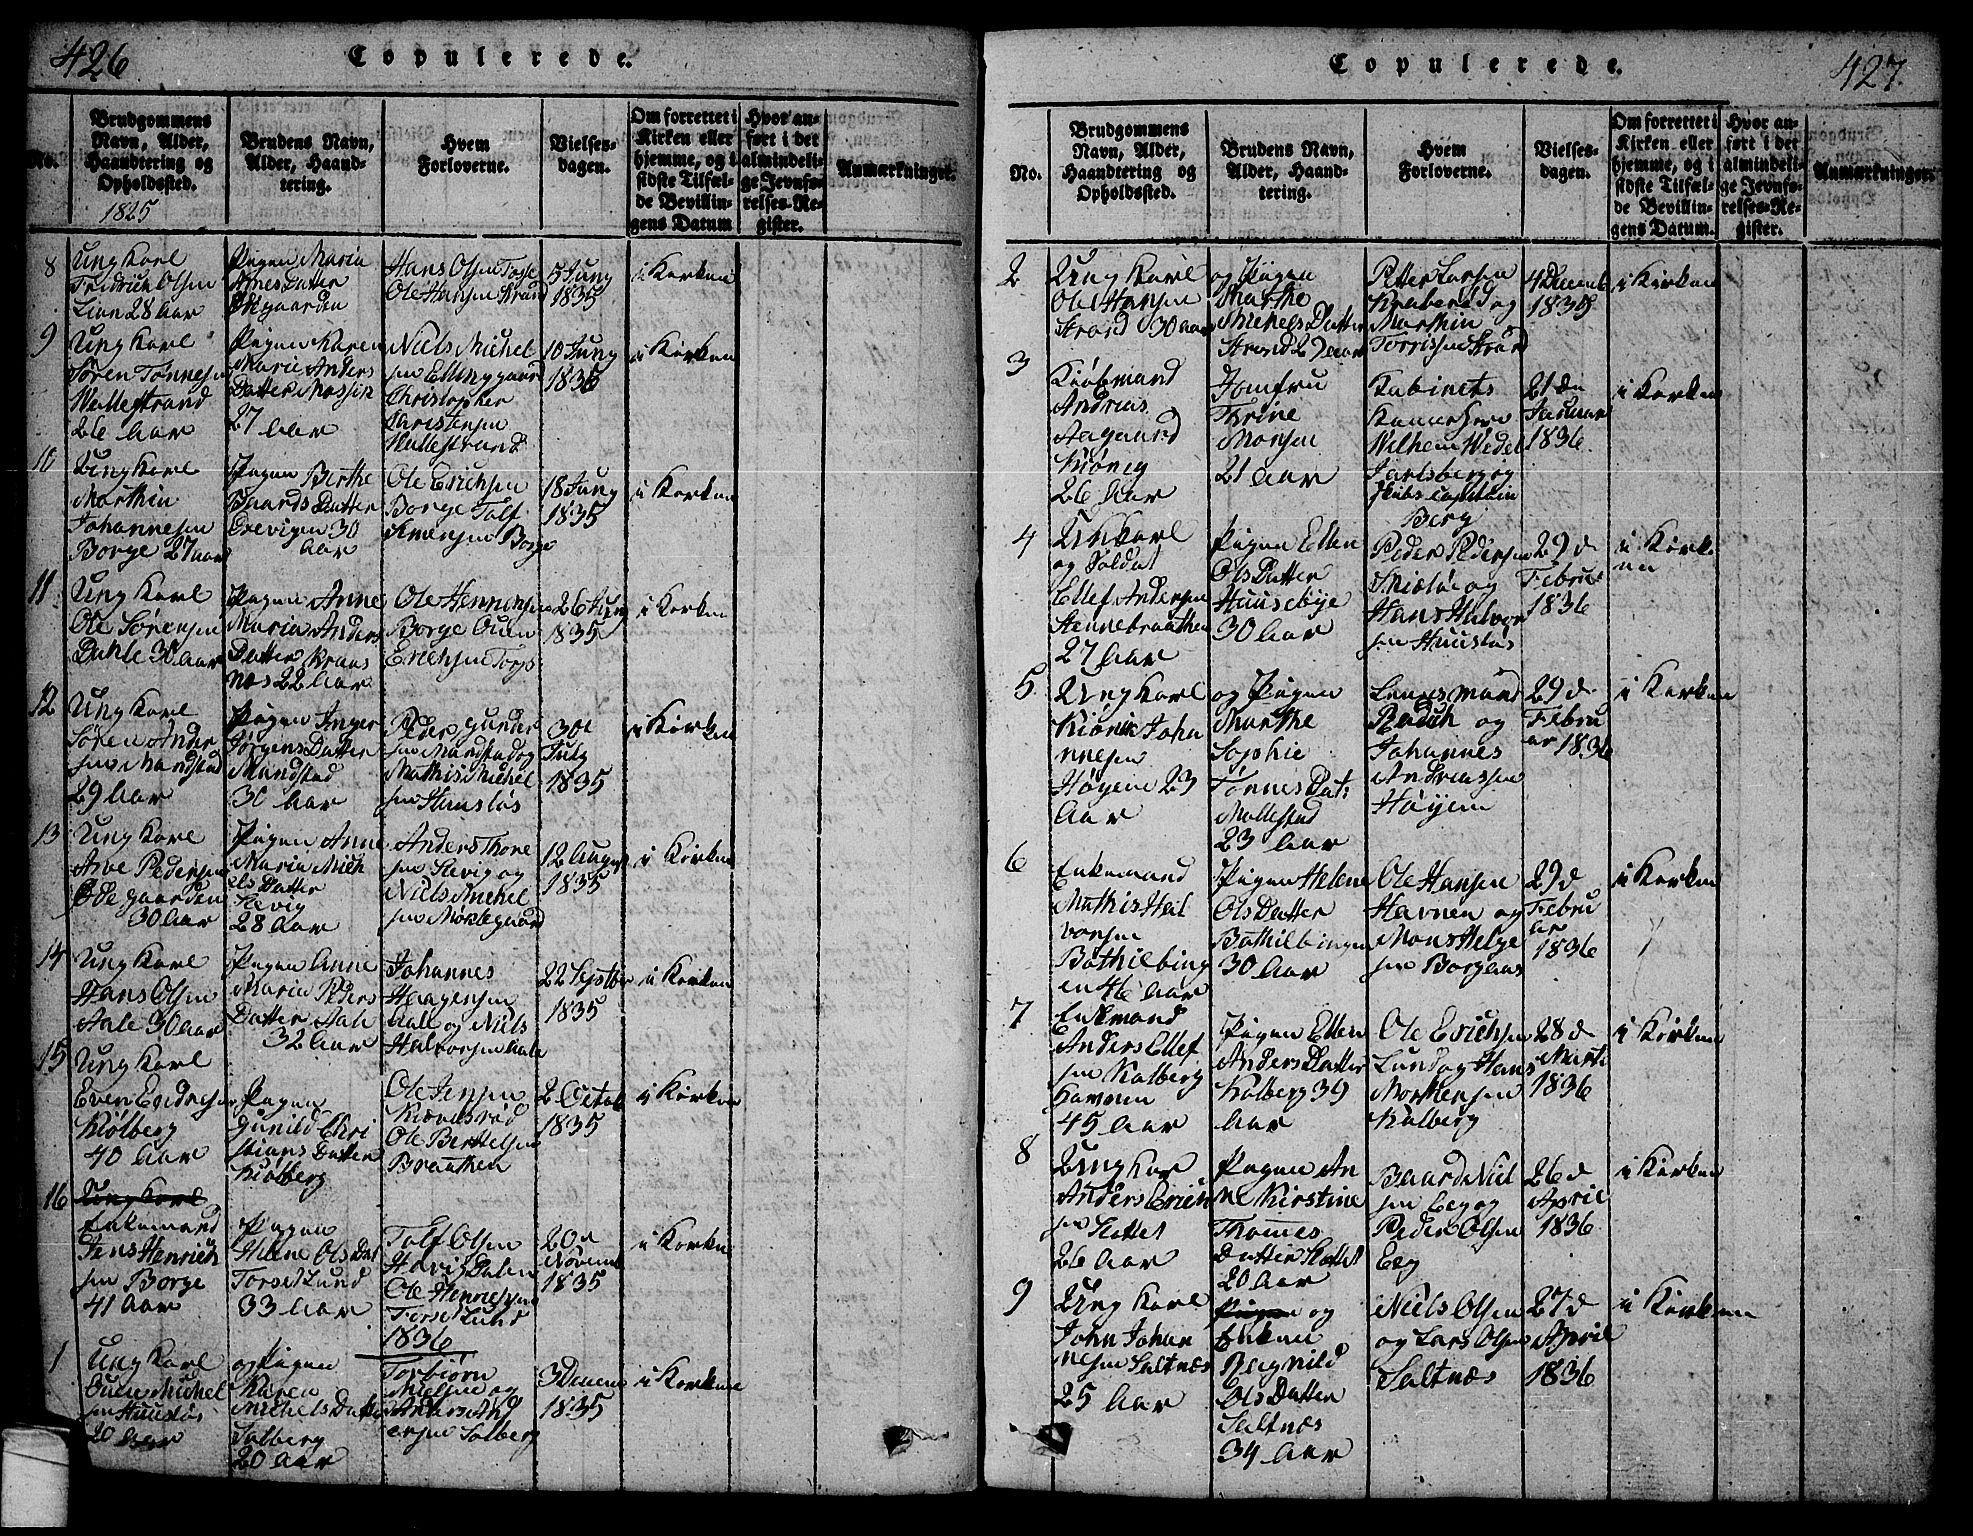 426
Copulerede.
No.
Brudgommens
Navn, Alder,
Haandtering og
Opholdssted.
1825
Brudens Navn,
Alder, Haand-
tering.
Hvem
Forloverne.
Vielses-
dagen.
Om forrettet i
Kirken eller
hjemme, og i
sidste Tilfæl-
de Bevillin-
gens Datum
Hvor an-
ført i det
almindeli-
ge Jevnfø-
relses-Re-
gister.
Anmærkninger.
8
Ung Karl
Fredrich Olsen
Lian 28 Aar
Pigen Maria
Arnes Datter
Ødegaarden
Hans Olsen
Ole Hansen Strand
5 Juny
1835
i Kirken
9
Ung Karl
Sören Tönnesen
Wallestrand
26 Aar
Pigen Karen
Marie Anders
Datter Mossin
27 Aar
Niels Michel
sen Ellinggaard
Christopher
Christensen
Wallestrand
10 Juny
1835
i Kirken
10
Ung Karl
Marthin
Johannesen
Borge 27 aar
Pigen Berthe
Baards Datter
Grevigen 30
aar
Ole Erichsen
Borge Tolf
Simensen Borge
18 Juny
1835
i Kirken
11
Ung Karl
Ole Sörensen
Dahle 30 Aar
Pigen Anne
Maria Anders
Datter Kraas
nes 22 Aar
Ole Hennichsen
Borge Ouen
Erichsen
26 Juny
1835
i Kirken
12
Ung Karl
Sören Ander
sen Mandstad
29 Aar
Pigen Inger
Jörgens Datter
Mandstad
30 Aar
Peder Gunder
sen Mandstad og
Mathis Michel
sen Huuslös
30
July
1835
i Kirken
13
Ung Karl
Arve Pedersen
Ödegaarden
30 Aar
Pigen Anne
Maria Mich
els Datter
Slevig
28 Aar
Anders Thore
sen Slevig og
Niels Michel
sen Mörkegaard
12 August
1835
i Kirken
14
Ung Karl
Hans Olsen
Aale 30 Aar
Pigen Anne
Maria Peders
Datter Aale
32 Aar
Johannes
Haagensen
Aale og Niels
Halvorsen Aale
22 Septbr
1835
i Kirken
15
Ung Karl
Even Endresen
Kiölberg
40 Aar
Pigen
Gunild Chri
stians Datter
Kiölberg
Ole Jensen
Ole Berthelsen
Braathen
2 Octob
1835
i Kirken
16
Ung Karl
Enkemand
Jens Henrich
sen Borge
41 Aar
Pigen
Helene Ols Dat
Torsel Lund
33 Aar
Tolf Olsen
Ole Hennesen
Torsel Lund
20
Novemb
1835
i Kirken
1836
1
Ung Karl
Ouen Michel
sen Huuslös
20 Aar
og Pigen
Karen
Michels Datter
Solberg
20 Aar
Torbiörn
Nielsen og
Anders And
ersen Solberg
3 Decem
1835
i Kirken
427.
Copulerede.
No.
Brudgommens
Navn, Alder,
Haandtering og
Opholdssted.
Brudens Navn,
Alder, Haand-
tering.
Hvem
Forloverne.
Vielses-
dagen.
Om forrettet i
Kirken eller
hjemme, og i
sidste Tilfæl-
de Bevillin-
gens Datum.
Hvor an-
ført i det
almindeli-
ge Jevnfø-
relses-Re-
gister.
Anmærkninger.
2
Ung Karl
Ole Hansen
Strand 30 aar
og Pigen
Marthe
Michels Datter
Strand 29 aar
Petter Larsen
og
Marthin
Torrissen Strand
4 Decemb
1835
i Kirken
3
Kiöbmand
Andreas
Aagaard
Kiönig
26 Aar
Jomfru
Thrine
Monsen
21 Aar
Kabinets
Kamerherre
Wilhem Wedel
Jarlsberg og
Skibs Capitain
Berg
21 de
Januar
1836
i Kirken
4
og Soldat
Ellef Andersen
Hennebraathen
27 Aar
Pigen Ellen
Ols Datter
Huusebye
30 Aar
Peder Pedersen
og
Hans Halvor
sen Huuslös
29 d
Febru
1836
i Kirk
en
5
Ung Karl
Joha
nnesen
Höyem 23
Aar
og Pigen
Marthe
Sophie
Tönnes Dat:
Mollestad
23 Aar
Lensmand
og
Johannes
Andreassen
Höyem
29 d
Febru
ar 1836
i Kirken
6
Enkemand
Mathis Hal
vorsen
Bathilbing
en 46 Aar
Pigen Helene
Ols Datter
Bathilbingen
30 Aar
Ole Hansen
Havnen og
Mons Helge
sen
29 d
Febru
ar
1836
i Kirken
7
Enkemand
Anders Ellef
sen Kalberg
Hammen
45 Aar
Pigen Ellen
Anders Datter
Kalberg 39
Aar
Ole Erichsen
Lund og Hans
Morthensen
Kalberg
28 d
Marti
1836
i Kirken
8
Ung Kar
Anders Erich
sen Slottet
26 Aar
Pigen An
ne Kirstine
Thomes
Datter Slottet
20 Aar
Baard Niel
sen Eeg og
Peder Olsen
Eeg
26 d
April
1836
i Kirken
9
Ung Karl
John Johan
nesen Saltnæs
25 Aar
Pigen og
Enken
Ragnild
Ols Datter
Saltnæs
34 Aar
Niels Olsen
og Lars Olsen
Saltnæs
27 d
April
1836
i Kirken